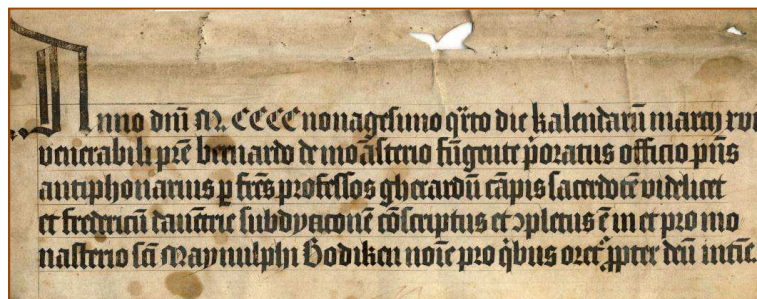 Anno dnū M. CCCC nonagesimo qrto die kalendarū marcij xvi
venerabili pre bernardo de moāsterio fūgente p̓oratus officio pn̄s
antiphonarius p fres professos gherardū cāpis sacerdotē videlicet
et fredericū dauētrie subdyaconē cōscriptus et ↄpletus ē in et pro mo
nasterio sci Maynulphi Bodiken noīe pro qbus oret ppter deū